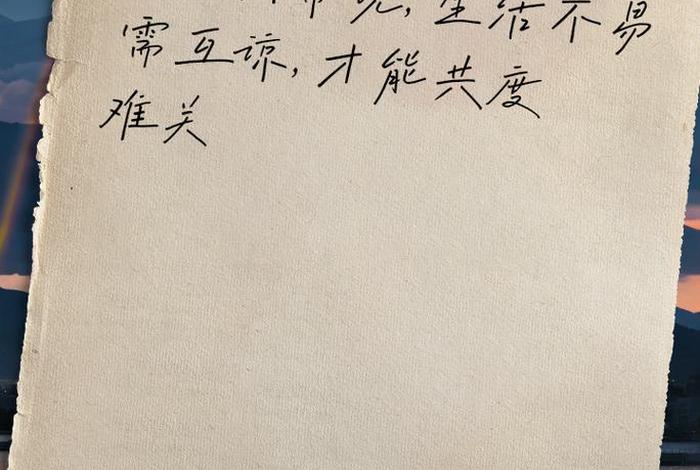 生活不易
需互谅,才能共度
难关